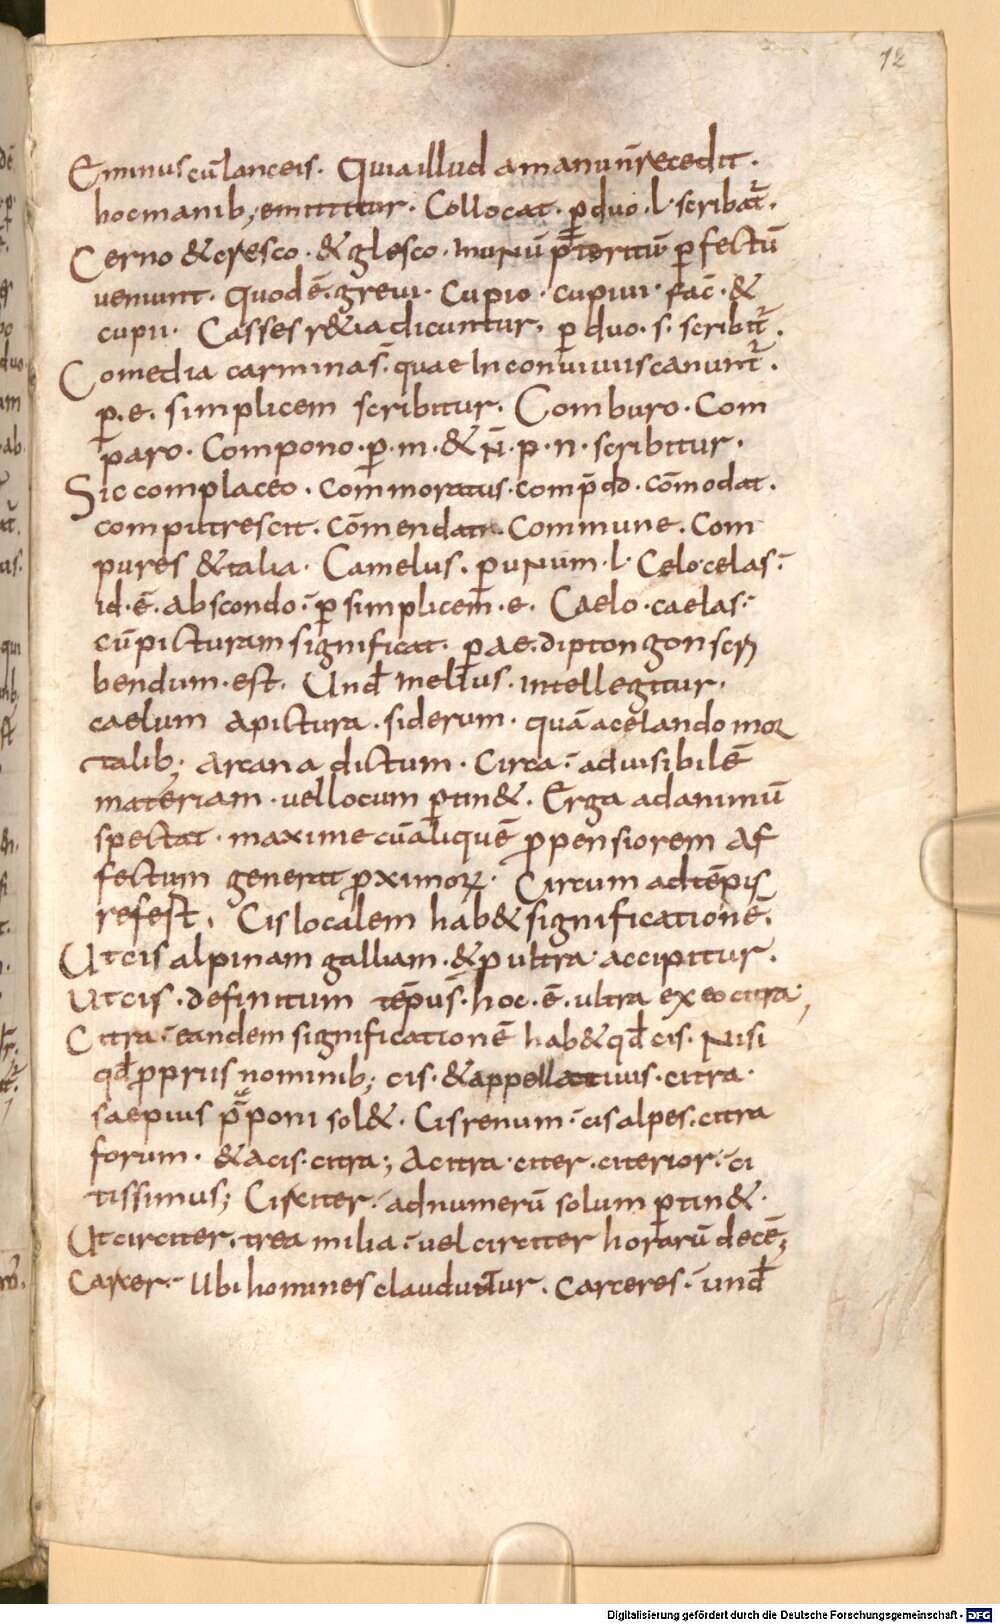 12
Eminus cū lanceis. Quia illud a manu n̄ recedit.
hoc manib; emittitur. Collocat. ꝑ duo. l. scribat̄.
Cerno & cresco. & glesco. in unū p̄teritū ꝑfectū
ueniunt. quod ē. greui. Cupio. cupiui. fac̄. &
cupii. Casses r&ia dicuntur. ꝑ duo. s. scribit̄.
Comedia carmina s̄. quae In conuiuiis canunt̄.
ꝑ. e. simplicem scribitur. Comburo. Com
paro. Compono. ꝑ. m. & n̄. p. n. scribitur.
Sic complaceo. commoratus. comp̄do. cōmodat.
computrescit. cōmendat. Commune. Com
pures & talia. Camelus. ꝑ unum. l. Celo. celas.
id. ē. abscondo. ꝑ simplicem. e. Caelo. caelas.
cū picturam significat. ꝑ ae. diptongon scri
bendum. est. Und̄ melius. intellegitur.
caelum a pictura. siderum. quā a celando mor
talib; arcana dictum. Circa. ad uisibilē
materiam. uel locum ꝑtin&. Erga ad animū
spectat. maxime cū aliquē ꝓpensiorem af
fectum generat ꝓximorꝝ. Circum ad tēpis
refest. Cis localem hab& significationē.
Ut cis alpinam galliam. & ꝑ ultra accipitur.
Ut cis. definitum tēpus. hoc. ē. ultra ex eo citra;
Citra. eandem significationē hab& qd̄ cis. Nisi
qd̄ ꝓpriis nominib; cis. & appellatiuis. citra.
saepius p̄poni sol&. Cis renum. cis alpes. citra
forum. & a cis. citra; A citra. citer. citerior. ci
tissimus; Circiter. ad numerū solum ꝑtin&.
Ut circiter. trea milia. uel circiter horarū decē;
Carcer. Ubi homines clauduntur. Carceres. und̄
Digitalisierung gefördert durch die Deutsche Forschungsgemeinschaft - DFG